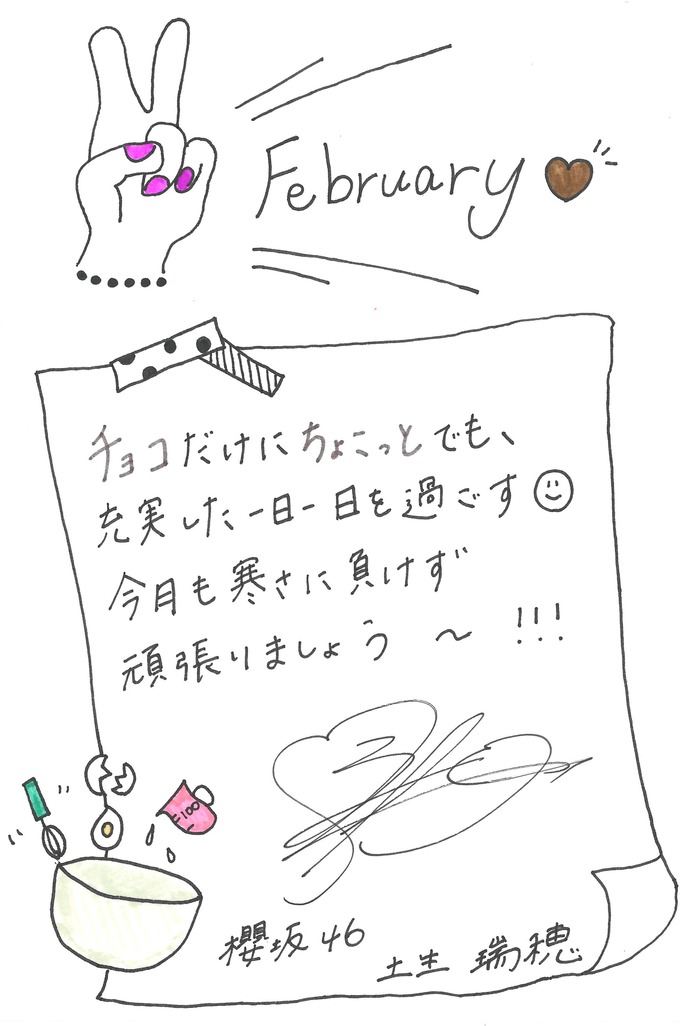 February
チョコだけにちょこっとでも、
充実した一日一日を過ごす
今月も寒さに負けず
頑張りましょう 〜 !!!
100
櫻坂46
土生 瑞穂